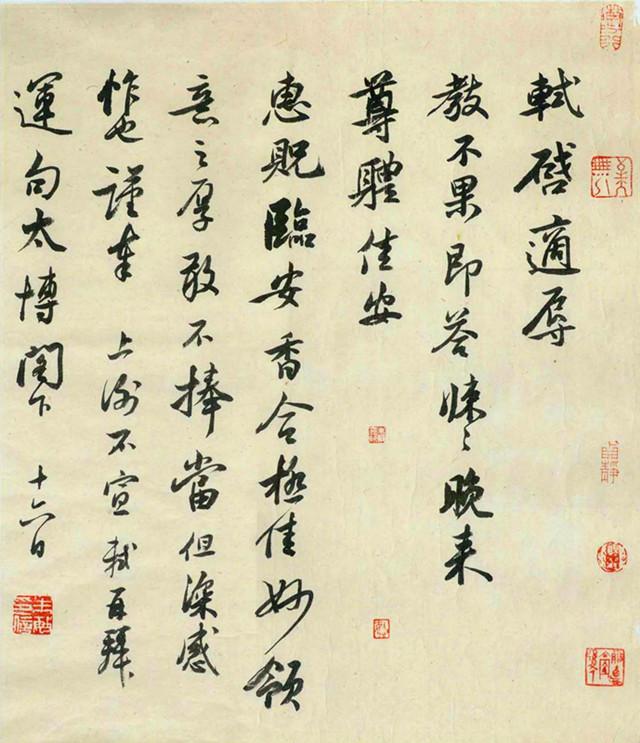 軾啓適辱
教不果即答悚〻晚来
尊體佳安
惠貺臨安香合極佳妙領
意〻厚敢不捧當但深感
怍也謹奉 上谢不宣軾百拜
運句太博閣下 十六日